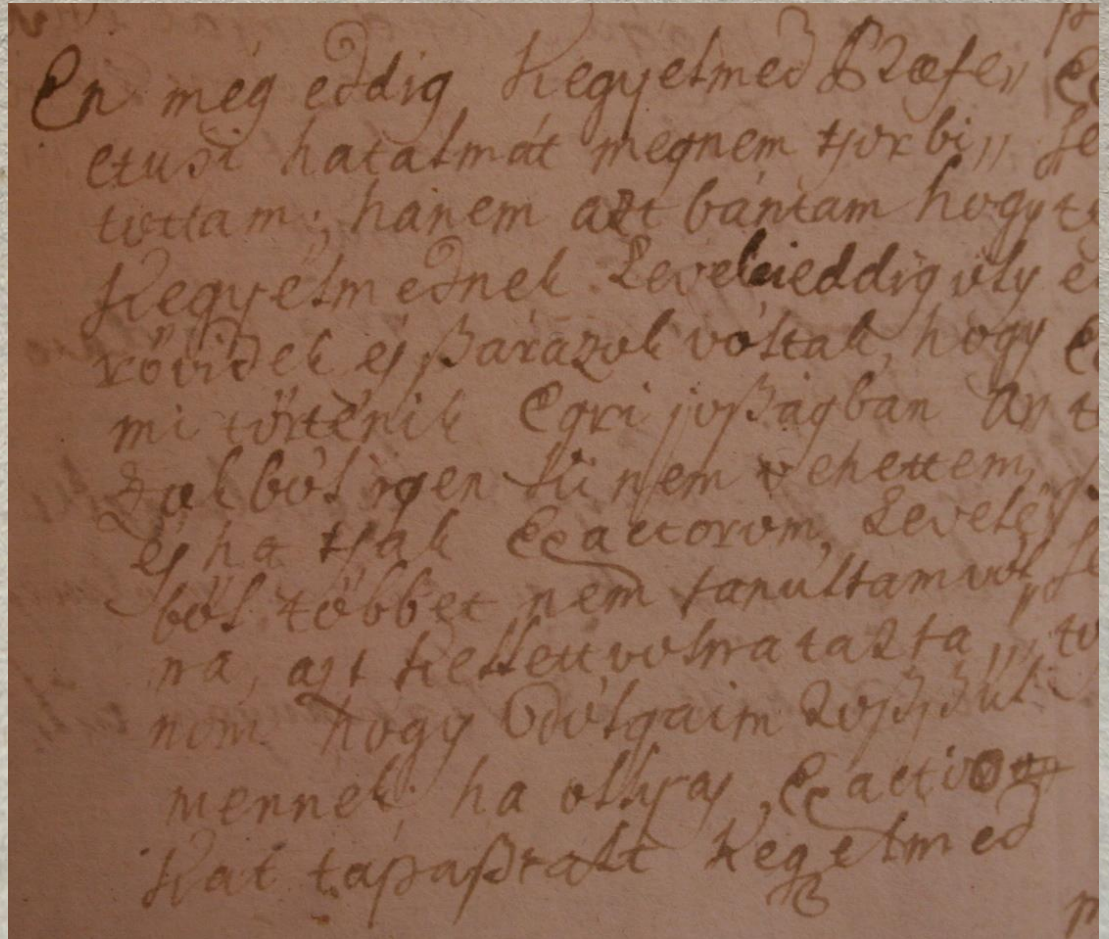 En még eddig Kegyelmed Præfe„
ctusi hatalmát megnem tsorbi„
tottam; hanem azt bántam hogy
Kegyelmednek Levelei eddig oly
rövidek és szárazok vóltak, hogy
mi történik Egri joszágban Az„
zokból igen ki nem vehettem,
és ha tsak Exactorom, Levelé„
ből többet nem tanúltam vol„
na, azt kellett volna tarta„
nom hogy Dolgaim Rosszúl
mennek; ha ollyas Exactio
Kat tapasztalt Kegyelmed